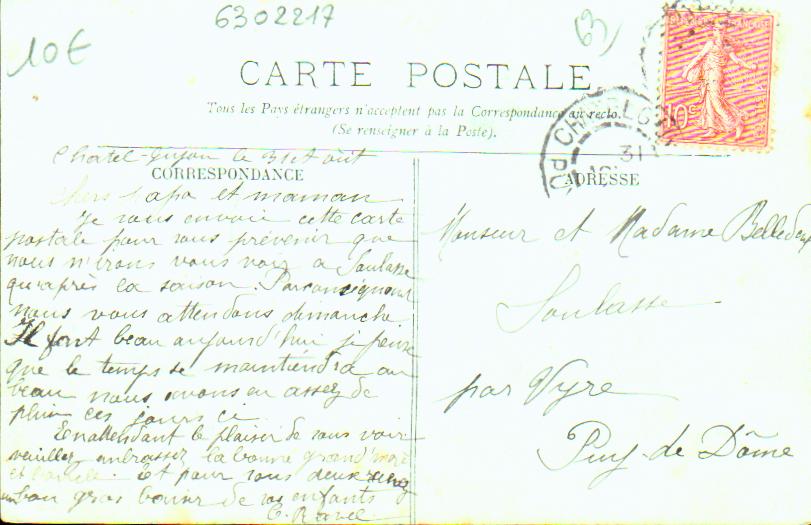 6302217
63
10€
RÉPUBLIQUE FRANÇAISE
10c
CARTE POSTALE
Tous les Pays étrangers n'acceptent pas la Correspondance au recto.
(Se renseigner à la Poste).
31
Chatel-Guyon le 31 et août
CORRESPONDANCE
ADRESSE
Chers Papa et maman
Je vous envoie cette carte
postale pour vous prévenir que
nous n'irons vous voir a Soulasse
qu'après la saison.
nous vous attendons dimanche
Il fait beau aujourd'hui je pense
que le temps se maintiendra au
beau nous avons eu assez de
pluie ces jours ci
En attendant le plaisir de vous voir
veuillez embrasser la bonne grand'mère
et Et pour vous deux
bon gros baiser de vos enfants
C. Ravel
Monsieur et Madame
Soulasse
par Vyre
Puy-de Dôme